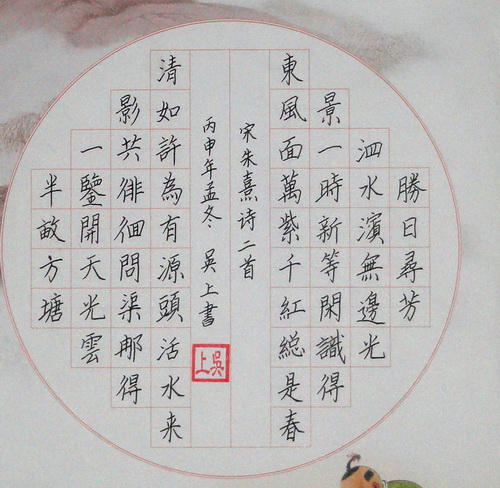 勝日尋芳
泗水濱無邊光
景一時新等閑識得
東風面萬紫千紅総是春
宋朱熹诗二首
半畝方塘
一鑒開天光雲
影共徘徊問渠那得
清如許為有源頭活水来
丙申年孟冬 吳上書
吳上